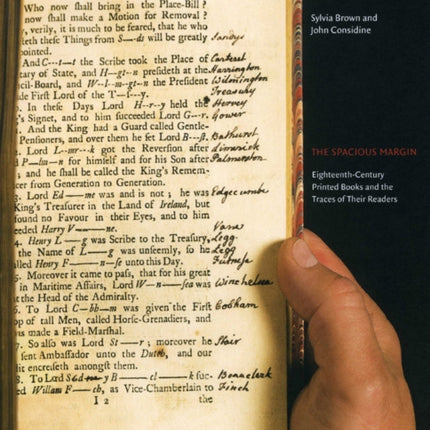 Sylvia Brown and
John Considine
THE SPACIOUS MARGIN
Eighteenth-Century
Printed Books and the
Traces of Their Readers
Who now shall bring in the Place-Bill?
now shall make a Motion for Removal?
, verily, it is much to be feared, that he who
ieth these Things from S---ds will be greatly Sandys
pointed.
And C---t the Scribe took the Place of Carteret
tary of State, and H--gt--n presideth at the Harrington
cil-Board, and W--l-m--gt--n the President Wilmington
de First Lord of the T---y. Treasury
. In these Days Lord H--r--y held the Harvey
's Signet, and to him succeeded G---r. Gower
. And the King had a Guard called Gentle-
Pensioners, and over them he set Lord B---ſt. Bathurst
. Lord L--m--k got the Reversion after Limerick
d P--lm--n for himself and for his Son after Palmerston
, and he shall be called the King's Remem-
cer from Generation to Generation.
. Lord Ed---me was and is not; he was Edgecumbe
King's Treasurer in the Land of Ireland, but
found no Favour in their Eyes, and to him
eeded Harry V---ne. Vane
4. Henry L---g was Scribe to the Treasury, Legg
the Name of L---g was unseemly, so he Legg
lled Henry F---n--se unto this Day. Furnese
. Moreover it came to pass, that for his great
in Maritime Affairs, Lord W--n---sea was Winchelsea
t the Head of the Admiralty.
6. To Lord C--bh--m was given the First Cobham
op of tall Men, called Horse-Grenadiers, and
was made a Field-Marshal.
7. So also was Lord St---r; moreover he Stair
sent Ambassador unto the Dutch, and our
it encreaseth amongst them.
8. To Lord Sidney B---cl---k suc- Beauclerk
ed William F---ch, as Vice-Chamberlain to Finch
I 2 the